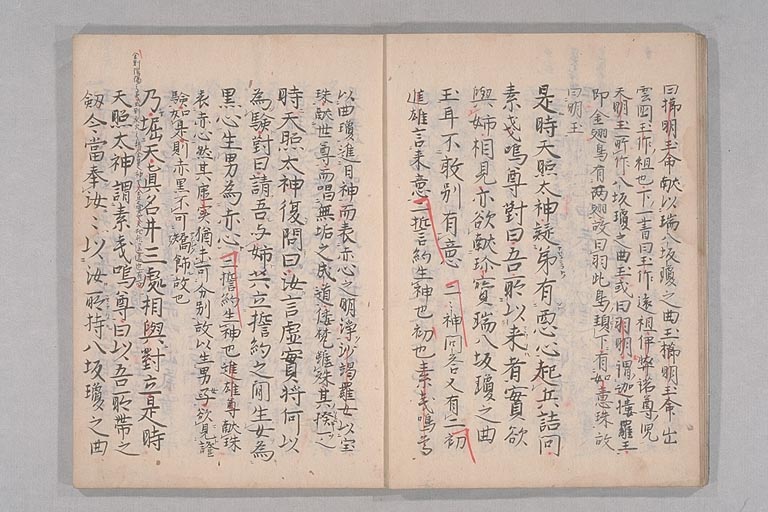 曰櫛明玉命献以瑞八坂瓊之曲玉櫛明玉命出
雲國玉作祖也下一書曰玉作遠祖伊弉諾尊児
天明玉所作八坂瓊之曲玉或曰羽明玉謂迦樓羅王
即金翅鳥有两翅故曰羽此鳥頚下有如意珠故
曰明玉
是時天照太神疑弟有悪心起兵詰問
素戔嗚尊對曰吾所以来者實欲
與姉相見亦欲献珍寳瑞八坂瓊之曲
玉耳不敢別有意 二神問答又有二初
進雄言来意二誓約生神也初也素戔嗚尊
以曲瓊進日神而表赤心之明浄沙竭羅女以宝
珠献世尊而唱無垢之成道倭梵雖殊其揆一之
時天照太神復問曰汝言虚實将何以
為験對曰請吾与姉共立誓約之間生女為
黒心生男為赤心 二誓約生神也進雄尊献珠
表赤心然其虚实猶未可分別故以生男子欲見證
験如果則赤黒不可矯飾故也
乃堀天真名井三處相與對立是時
天照太神謂素戔嗚尊曰以吾所帯之
劔今當奉汝〻以汝所持八坂瓊之曲